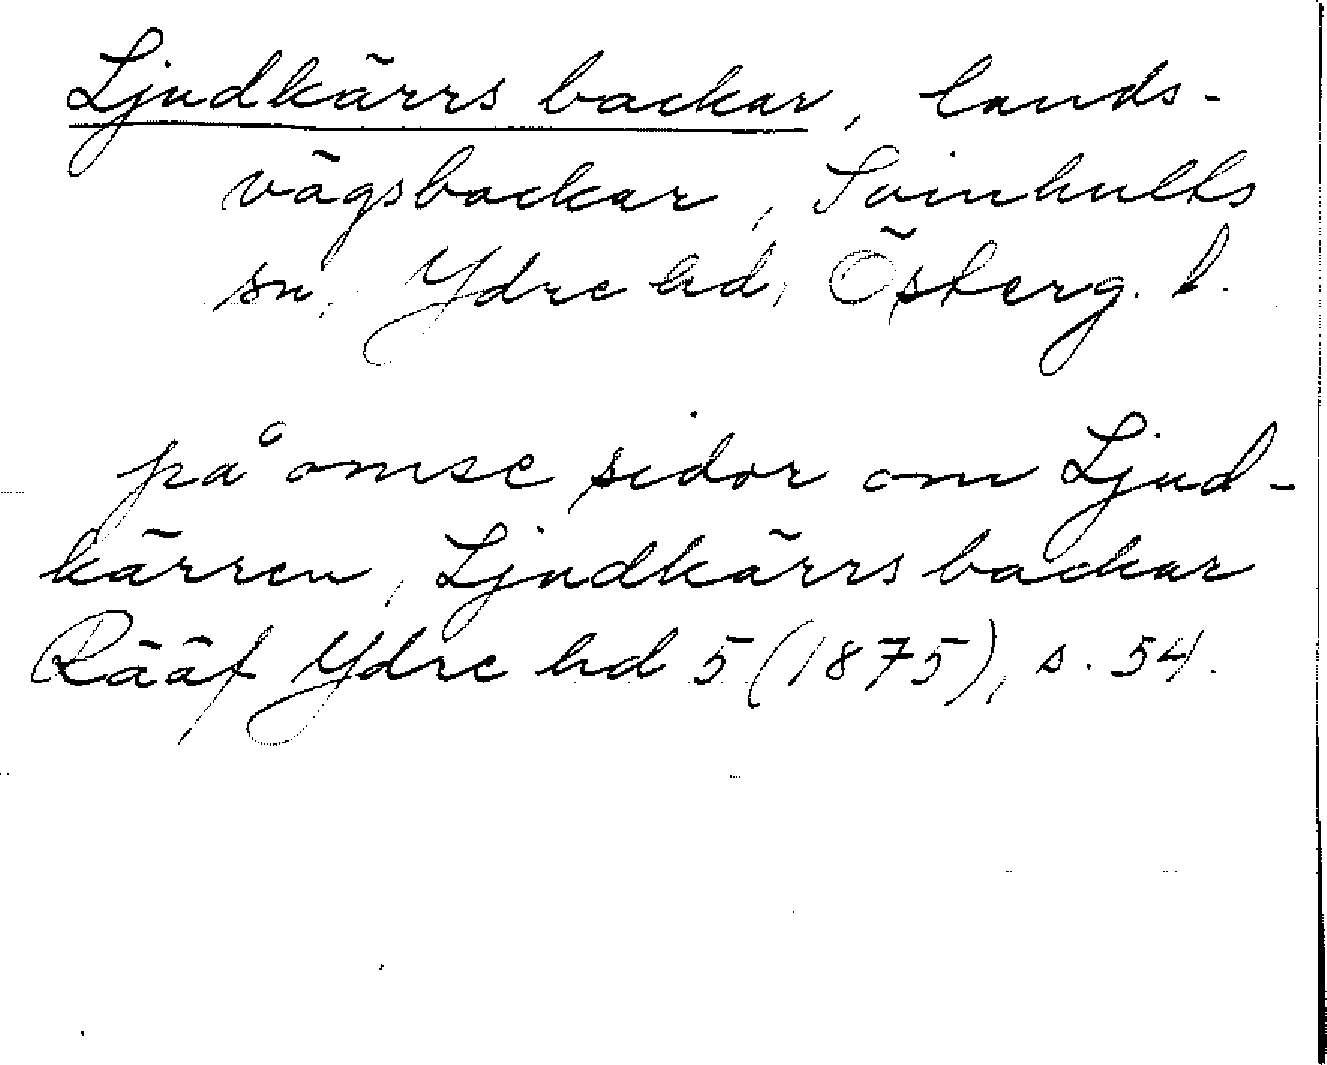 Ljudkärrs backar, lands-
vägsbackar, Svinhults
sn, Ydre hd, Österg. l.
på ömse sidor om Ljud-
kärren, Ljudkärrs backar
Rääf Ydre hd 5 (1875), s. 54.